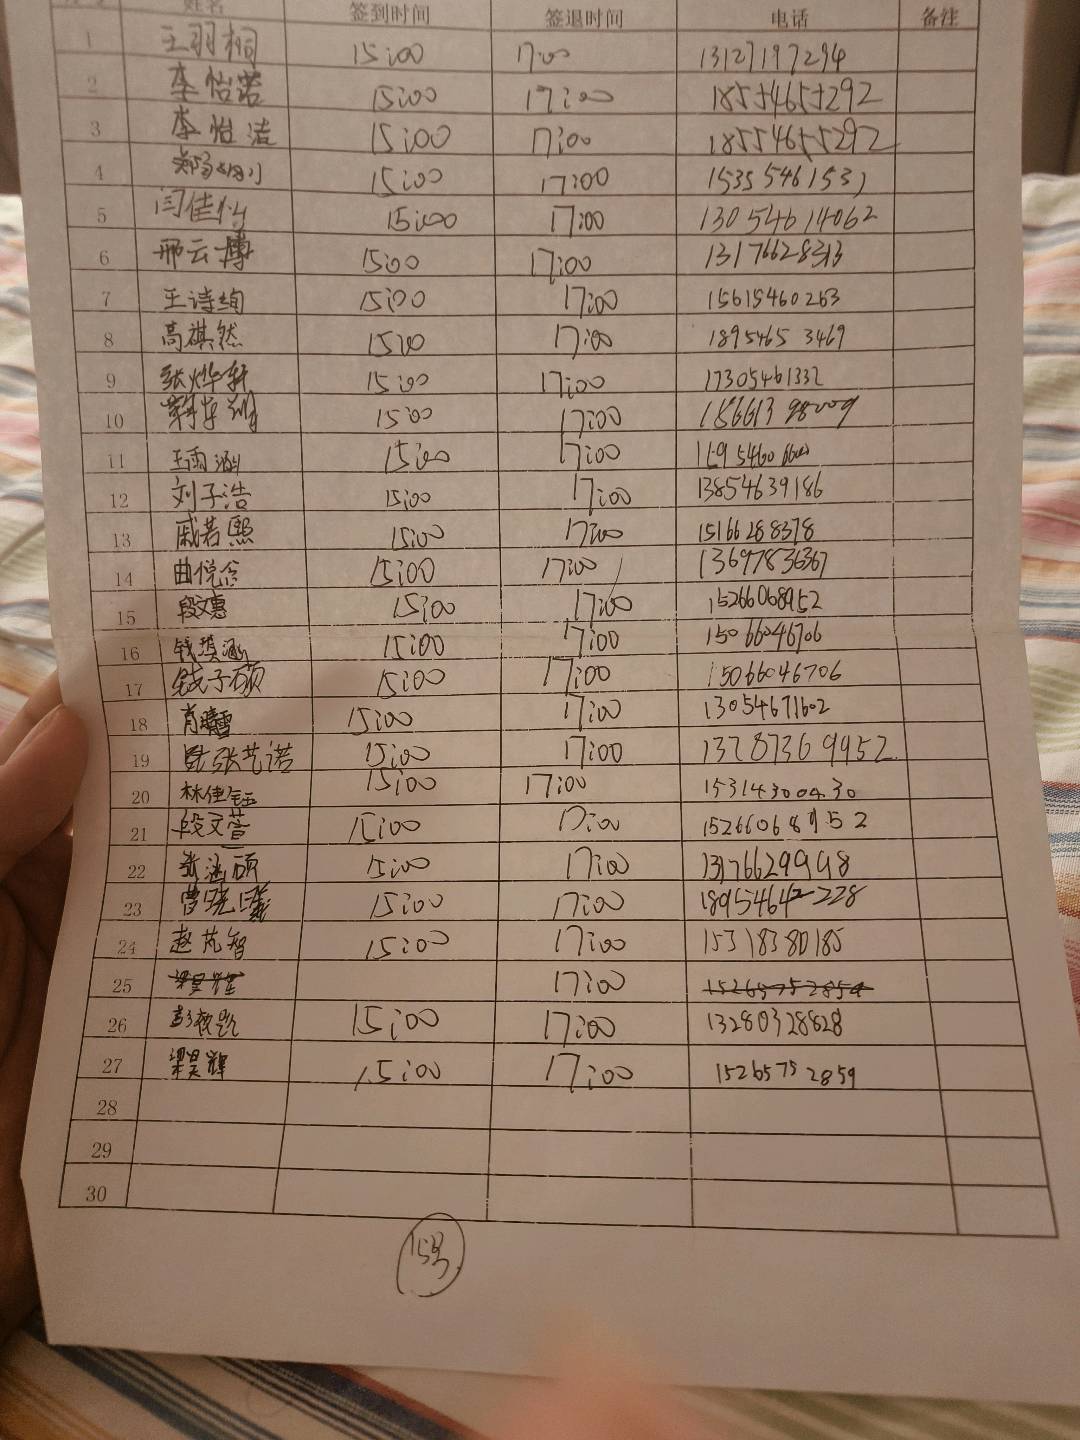 姓名 签到时间 签退时间 电话 备注
1 王羽桐 15:00 17:00 13127197294
2 李怡诺 15:00 17:00 18554655292
3 李怡洁 15:00 17:00 18554655292
4 15:00 17:00 15355461531
5 闫佳 15:00 17:00 13054614062
6 邢云博 15:00 17:00 13176628313
7 王诗绚 15:00 17:00 15615460263
8 高祺然 15:00 17:00 18954653469
9 张烨轩 15:00 17:00 17305461332
10 15:00 17:00
11 王雨涵 15:00 17:00
12 刘子浩 15:00 17:00 13854639186
13 戚若熙 15:00 17:00 15166288378
14 曲悦含 15:00 17:00 13697836367
15 段文惠 15:00 17:00 15266068952
16 钱淇涵 15:00 17:00 15066046706
17 钱子硕 15:00 17:00 15066046706
18 肖晴雪 15:00 17:00 13054671602
19 张艺诺 15:00 17:00 13787369952
20 林佳钰 15:00 17:00 15314300430
21 段文萱 15:00 17:00 15266068952
22 张涵硕 15:00 17:00 13176629998
23 曹晓曦 15:00 17:00 18954642228
24 赵芃智 15:00 17:00 15318380185
25 17:00
26 15:00 17:00 13280328828
27 梁昊辉 15:00 17:00 15265752859
28
29
30
15号